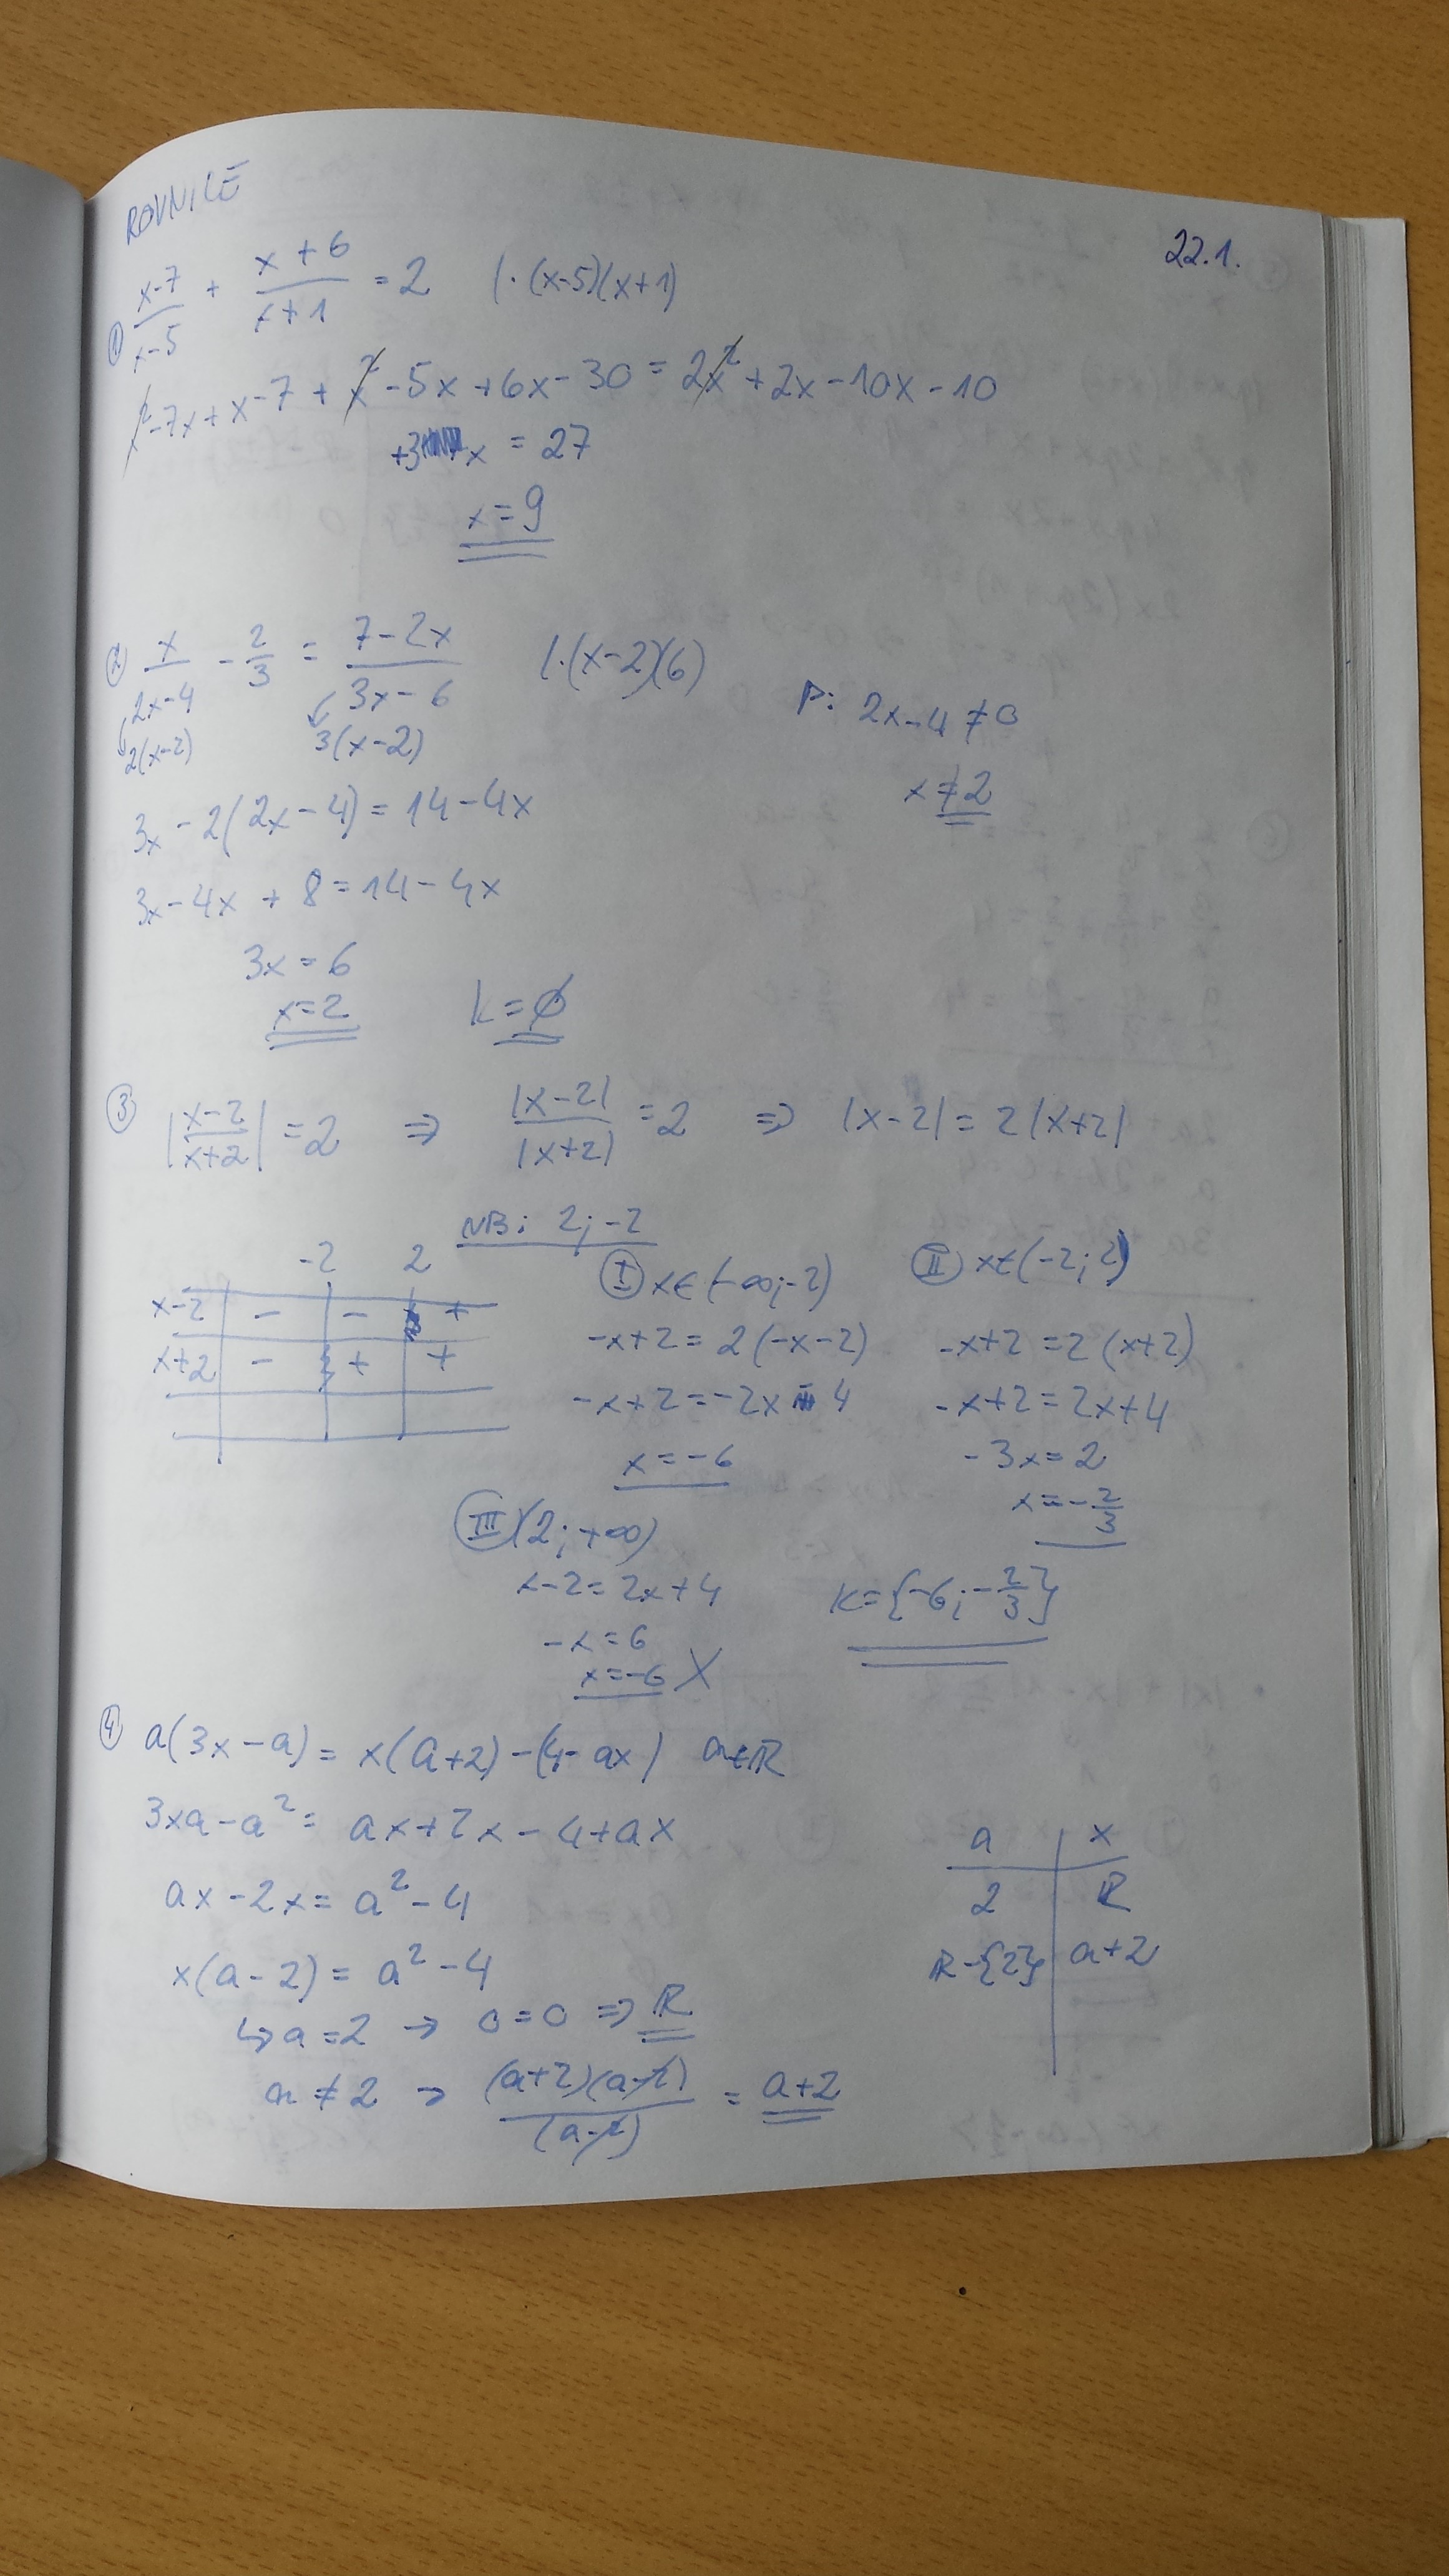 ROVNICE
22.1.
① (x-7)/(x-5) + (x+6)/(x+1) = 2 /·(x-5)(x+1)
x²-7x+x-7+x²-5x+6x-30=2x²+2x-10x-10
+3x = 27
x=9
② x/(2x-4) - 2/3 = (7-2x)/(3x-6) /·(x-2)(6)
2(x-2) 3(x-2)
P: 2x-4≠0
x≠2
3x-2(2x-4)=14-4x
3x-4x+8=14-4x
3x=6
x=2 K=∅
③ |(x-2)/(x+2)|=2 => |x-2|/|x+2|=2 => |x-2|=2|x+2|
NB: 2;-2
-2 2
x-2 - - +
x+2 - + +
Ⓘ x∈(-∞;-2)
-x+2=2(-x-2)
-x+2=-2x-4
x=-6
Ⓘ​Ⓘ x∈(-2;2)
-x+2=2(x+2)
-x+2=2x+4
-3x=2
x=-2/3
III (2;+∞)
x-2=2x+4
-x=6
x=-6 X
K={-6;-2/3}
④ a(3x-a)=x(a+2)-(4-ax) a∈R
3xa-a²=ax+2x-4+ax
ax-2x=a²-4
x(a-2)=a²-4
↳ a=2 → 0=0 => R
a≠2 → (a+2)(a-2)/(a-2) = a+2
a x
2 R
R-{2} a+2